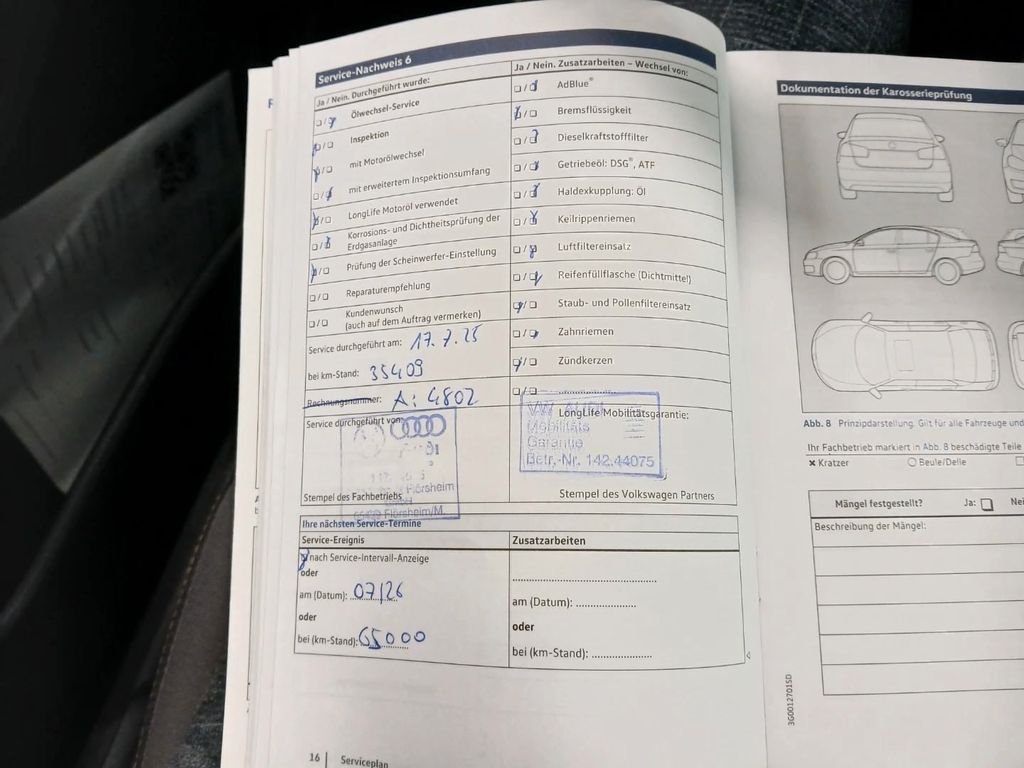 Service-Nachweis 6
Ja / Nein. Durchgeführt wurde:
Ölwechsel-Service
Inspektion
mit Motorölwechsel
mit erweitertem Inspektionsumfang
LongLife Motoröl verwendet
Korrosions- und Dichtheitsprüfung der
Erdgasanlage
Prüfung der Scheinwerfer-Einstellung
Reparaturempfehlung
Kundenwunsch
(auch auf dem Auftrag vermerken)
Service durchgeführt am: 17.7.25
bei km-Stand: 35409
Rechnungsnummer: A: 4802
Service durchgeführt von:
Flörsheim
65439 Flörsheim/M.
Stempel des Fachbetriebs
Ja / Nein. Zusatzarbeiten – Wechsel von:
AdBlue®
Bremsflüssigkeit
Dieselkraftstofffilter
Getriebeöl: DSG®, ATF
Haldexkupplung: Öl
Keilrippenriemen
Luftfiltereinsatz
Reifenfüllflasche (Dichtmittel)
Staub- und Pollenfiltereinsatz
Zahnriemen
Zündkerzen
LongLife Mobilitätsgarantie:
VW AUDI
Mobilitäts
Garantie
Betr.-Nr. 142.44075
Stempel des Volkswagen Partners
Ihre nächsten Service-Termine
Service-Ereignis
nach Service-Intervall-Anzeige
oder
am (Datum): 07/26
oder
bei (km-Stand): 65000
Zusatzarbeiten
am (Datum):
oder
bei (km-Stand):
16 | Serviceplan
Dokumentation der Karosserieprüfung
Abb. 8 Prinzipdarstellung. Gilt für alle Fahrzeuge und
Ihr Fachbetrieb markiert in Abb. 8 beschädigte Teile
Kratzer
Beule/Delle
Mängel festgestellt? Ja:
Beschreibung der Mängel:
3G0012701SD